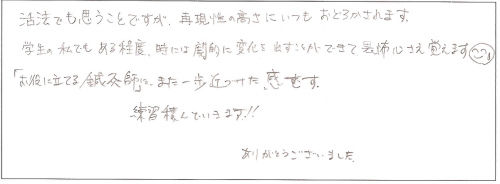 活法でも思うことですが、再現性の高さにいつもおどろかされます。
学生の私でもある程度、時には劇的に変化を出すことができて恐怖心さえ覚えます
「お役に立てる鍼灸師」に、また一歩近づけた感じです。
練習積んでいきます!!
ありがとうございました。